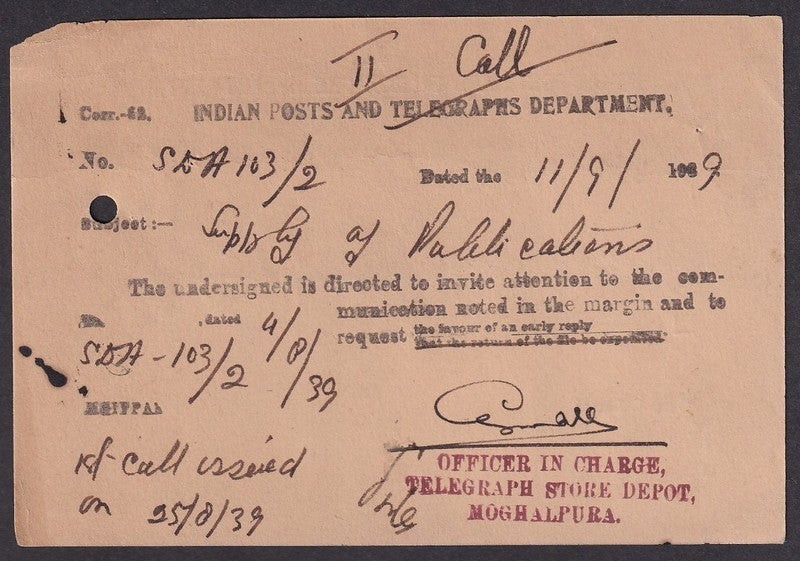 II Call
Corr.-62. INDIAN POSTS AND TELEGRAPHS DEPARTMENT.
No. SDA 103/2 Dated the 11/9/ 1939
Subject:— Supply of Publications
The undersigned is directed to invite attention to the com-
munication noted in the margin and to
request the favour of an early reply
that the return of the file be expedited.
No. , dated 4/8/39
SDA-103/2
call issued
on 25/8/39
OFFICER IN CHARGE,
TELEGRAPH STORE DEPOT,
MOGHALPURA.